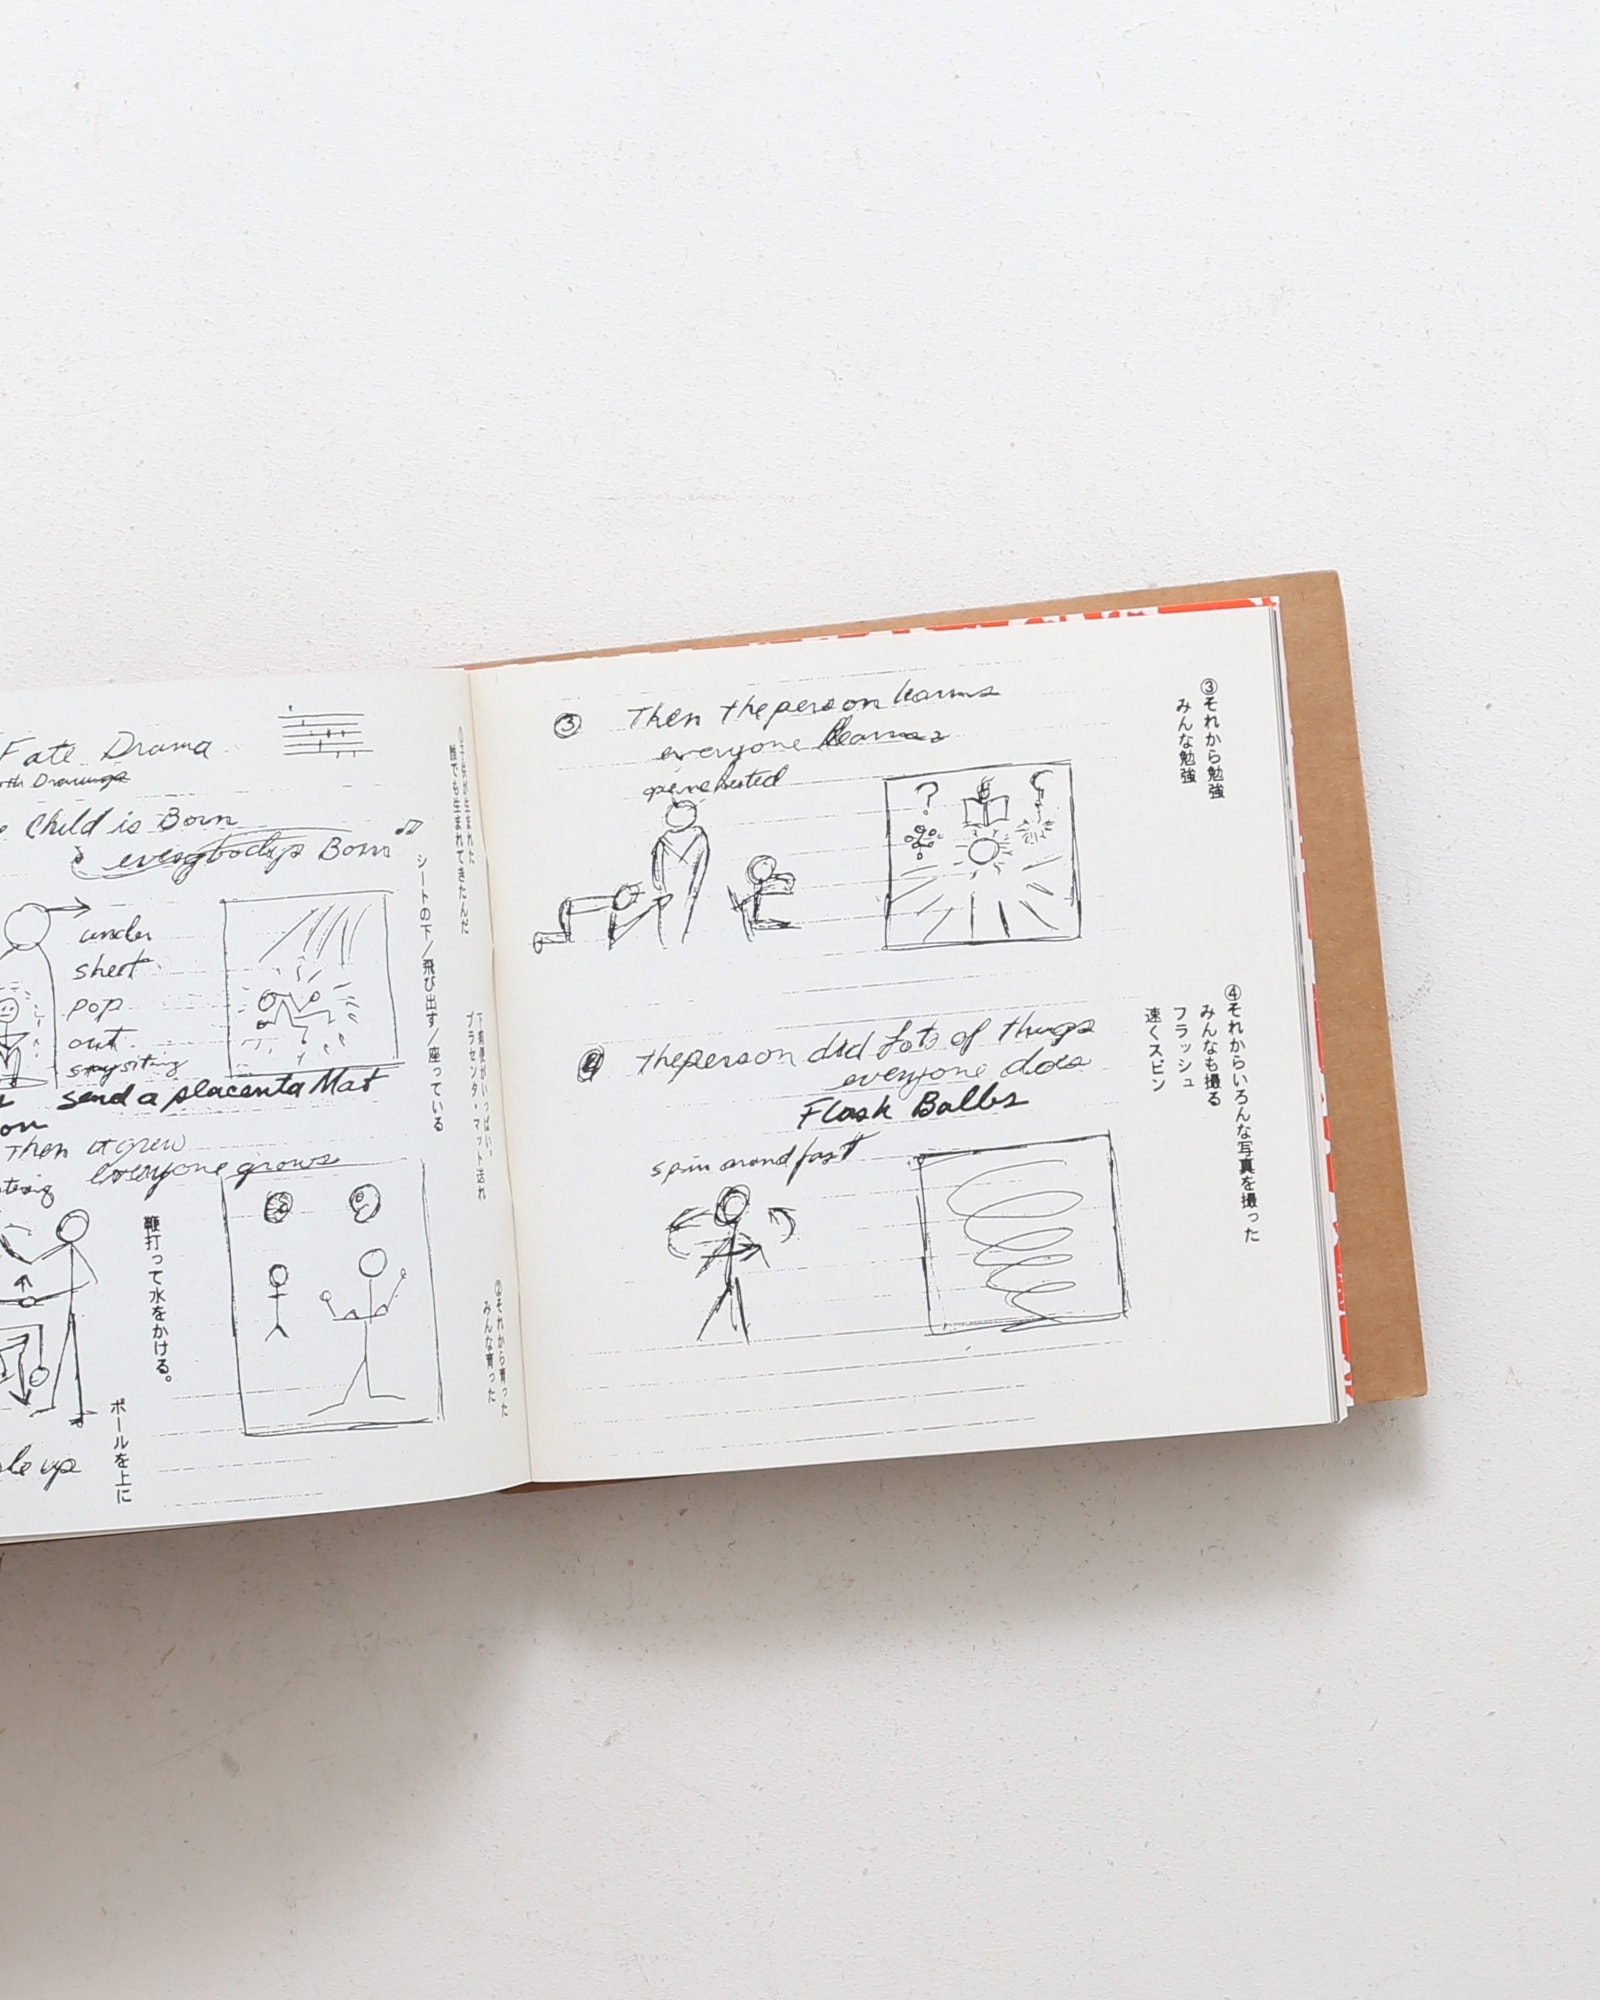 Fate Drama
Drawings
Child is Born
everybodys Born
under
sheet
pop
out
stay sitting
send a placenta Mat
on
Then it grew
everyone grows
le up
①子供が生まれた
誰でも生まれてきたんだ
シートの下／飛び出す／座っている
プラセンタ・マット送れ
②それから育った
みんな育った
鞭打って水をかける。
ボールを上に
③ Then the person learns
everyone learns
open chested
④ the person did Lots of things
everyone does
Flash Balbs
spin around fast
③それから勉強
みんな勉強
④それからいろんな写真を撮った
みんなも撮る
フラッシュ
速くスピン